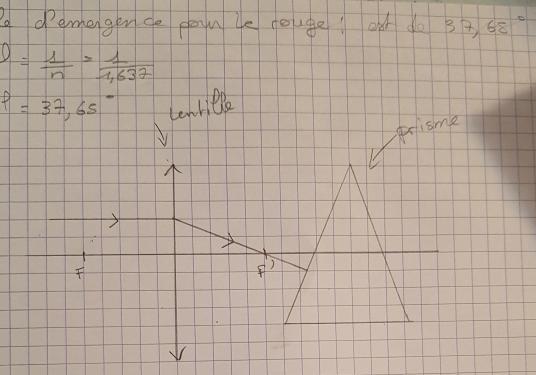 d'emergence pour le rouge : est de 37,65°
= 1/n = 1/1,637
= 37,65°
Lentille
prisme
F
F'